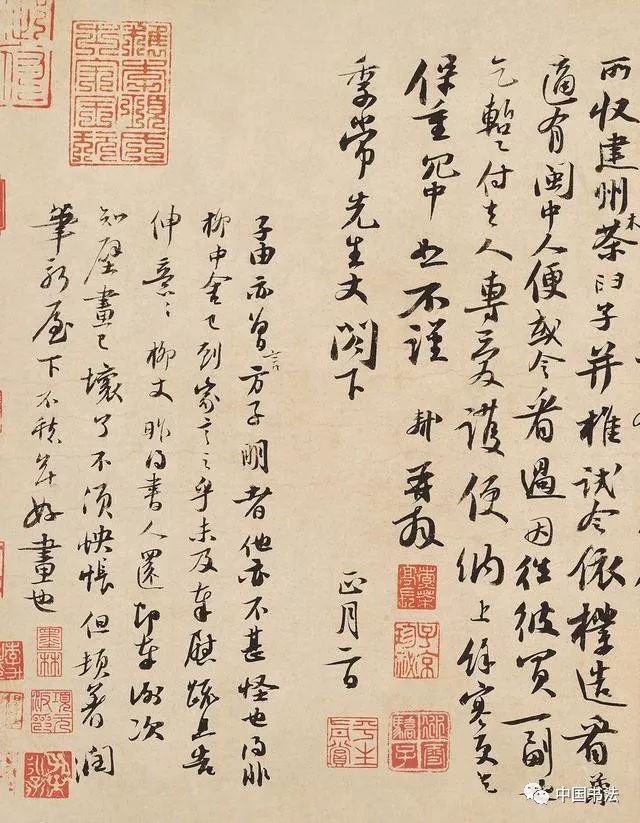 所收建州木茶臼子并椎試令依樣造看兼
適有閩中人便或令看過因往彼買一副也
乞暫付去人專愛護便納上餘寒更乞
保重冗中恕不謹 軾再拜
季常先生丈閣下
正月二日
子由亦曾言方子明者他亦不甚怪也得非
柳中舍已到家言之乎未及奉慰疏且告
伸意〻柳丈昨得書人還即奉謝次
知壁畫已壞了不須怏悵但頓著潤
筆新屋下不愁無好畫也
墨林
平生真賞
中国书法